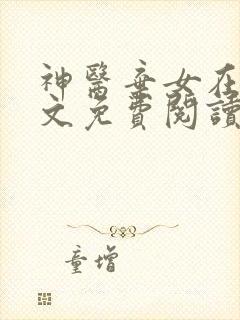 神醫棄女在
文免費閱讀
童增